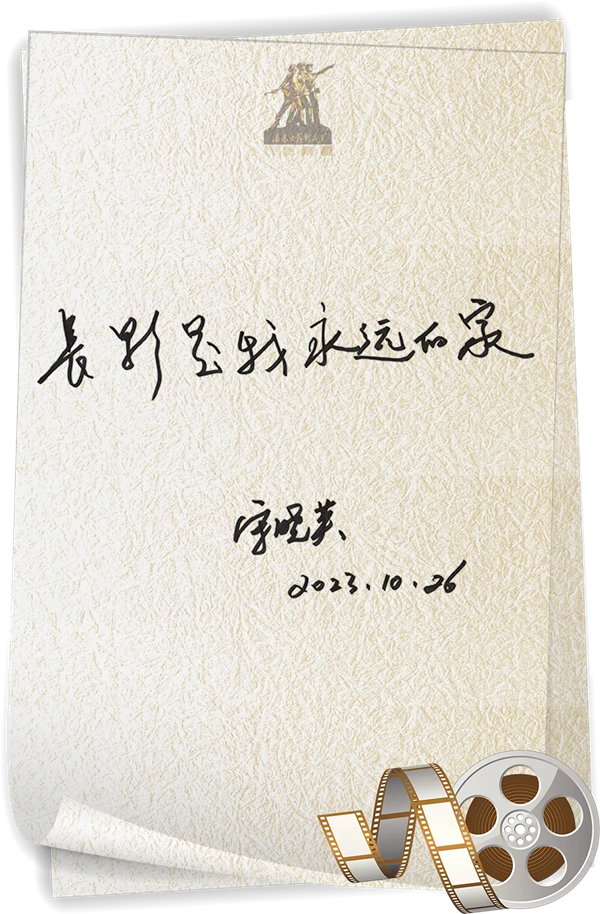 長影是我永远的家
宋晓英
2023.10.26